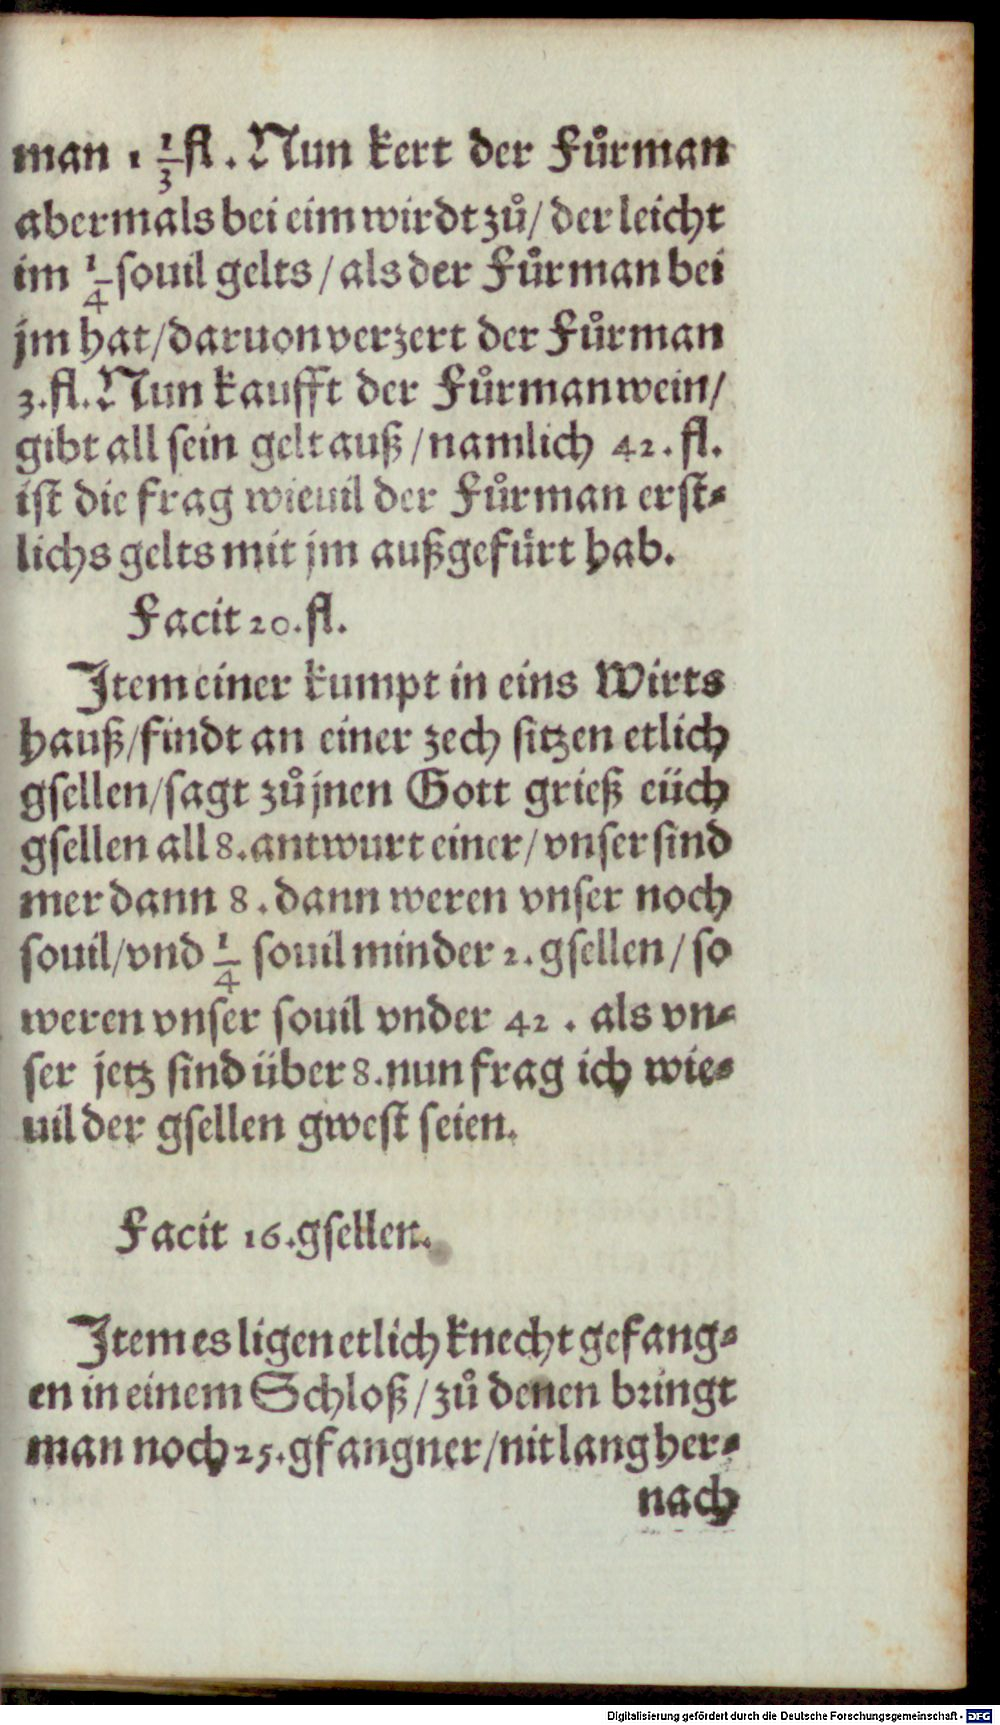 man 1 1/3 fl. Nun kert der Fůrman
abermals bei eim wirdt zů/ der leicht
im 1/4 souil gelts/ als der Fůrman bei
jm hat/ daruon verzert der Fůrman
3. fl. Nun kaufft der Fůrman wein/
gibt all sein gelt auß/ namlich 42. fl.
ist die frag wieuil der Fůrman erst⸗
lichs gelts mit jm außgefürt hab.
Facit 20. fl.
Item einer kumpt in eins Wirts
hauß/ findt an einer zech sitzen etlich
gsellen/ sagt zů jnen Gott grieß eüch
gsellen all 8. antwurt einer/ vnser sind
mer dann 8. dann weren vnser noch
souil/ vnd 1/4 souil minder 2. gsellen/ so
weren vnser souil vnder 42. als vn⸗
ser jetz sind über 8. nun frag ich wie⸗
uil der gsellen gwest seien.
Facit 16. gsellen.
Item es ligen etlich knecht gefang⸗
en in einem Schloß/ zů denen bringt
man noch 25. gfangner/ nit lang her⸗
nach
Digitalisierung gefördert durch die Deutsche Forschungsgemeinschaft - DFG